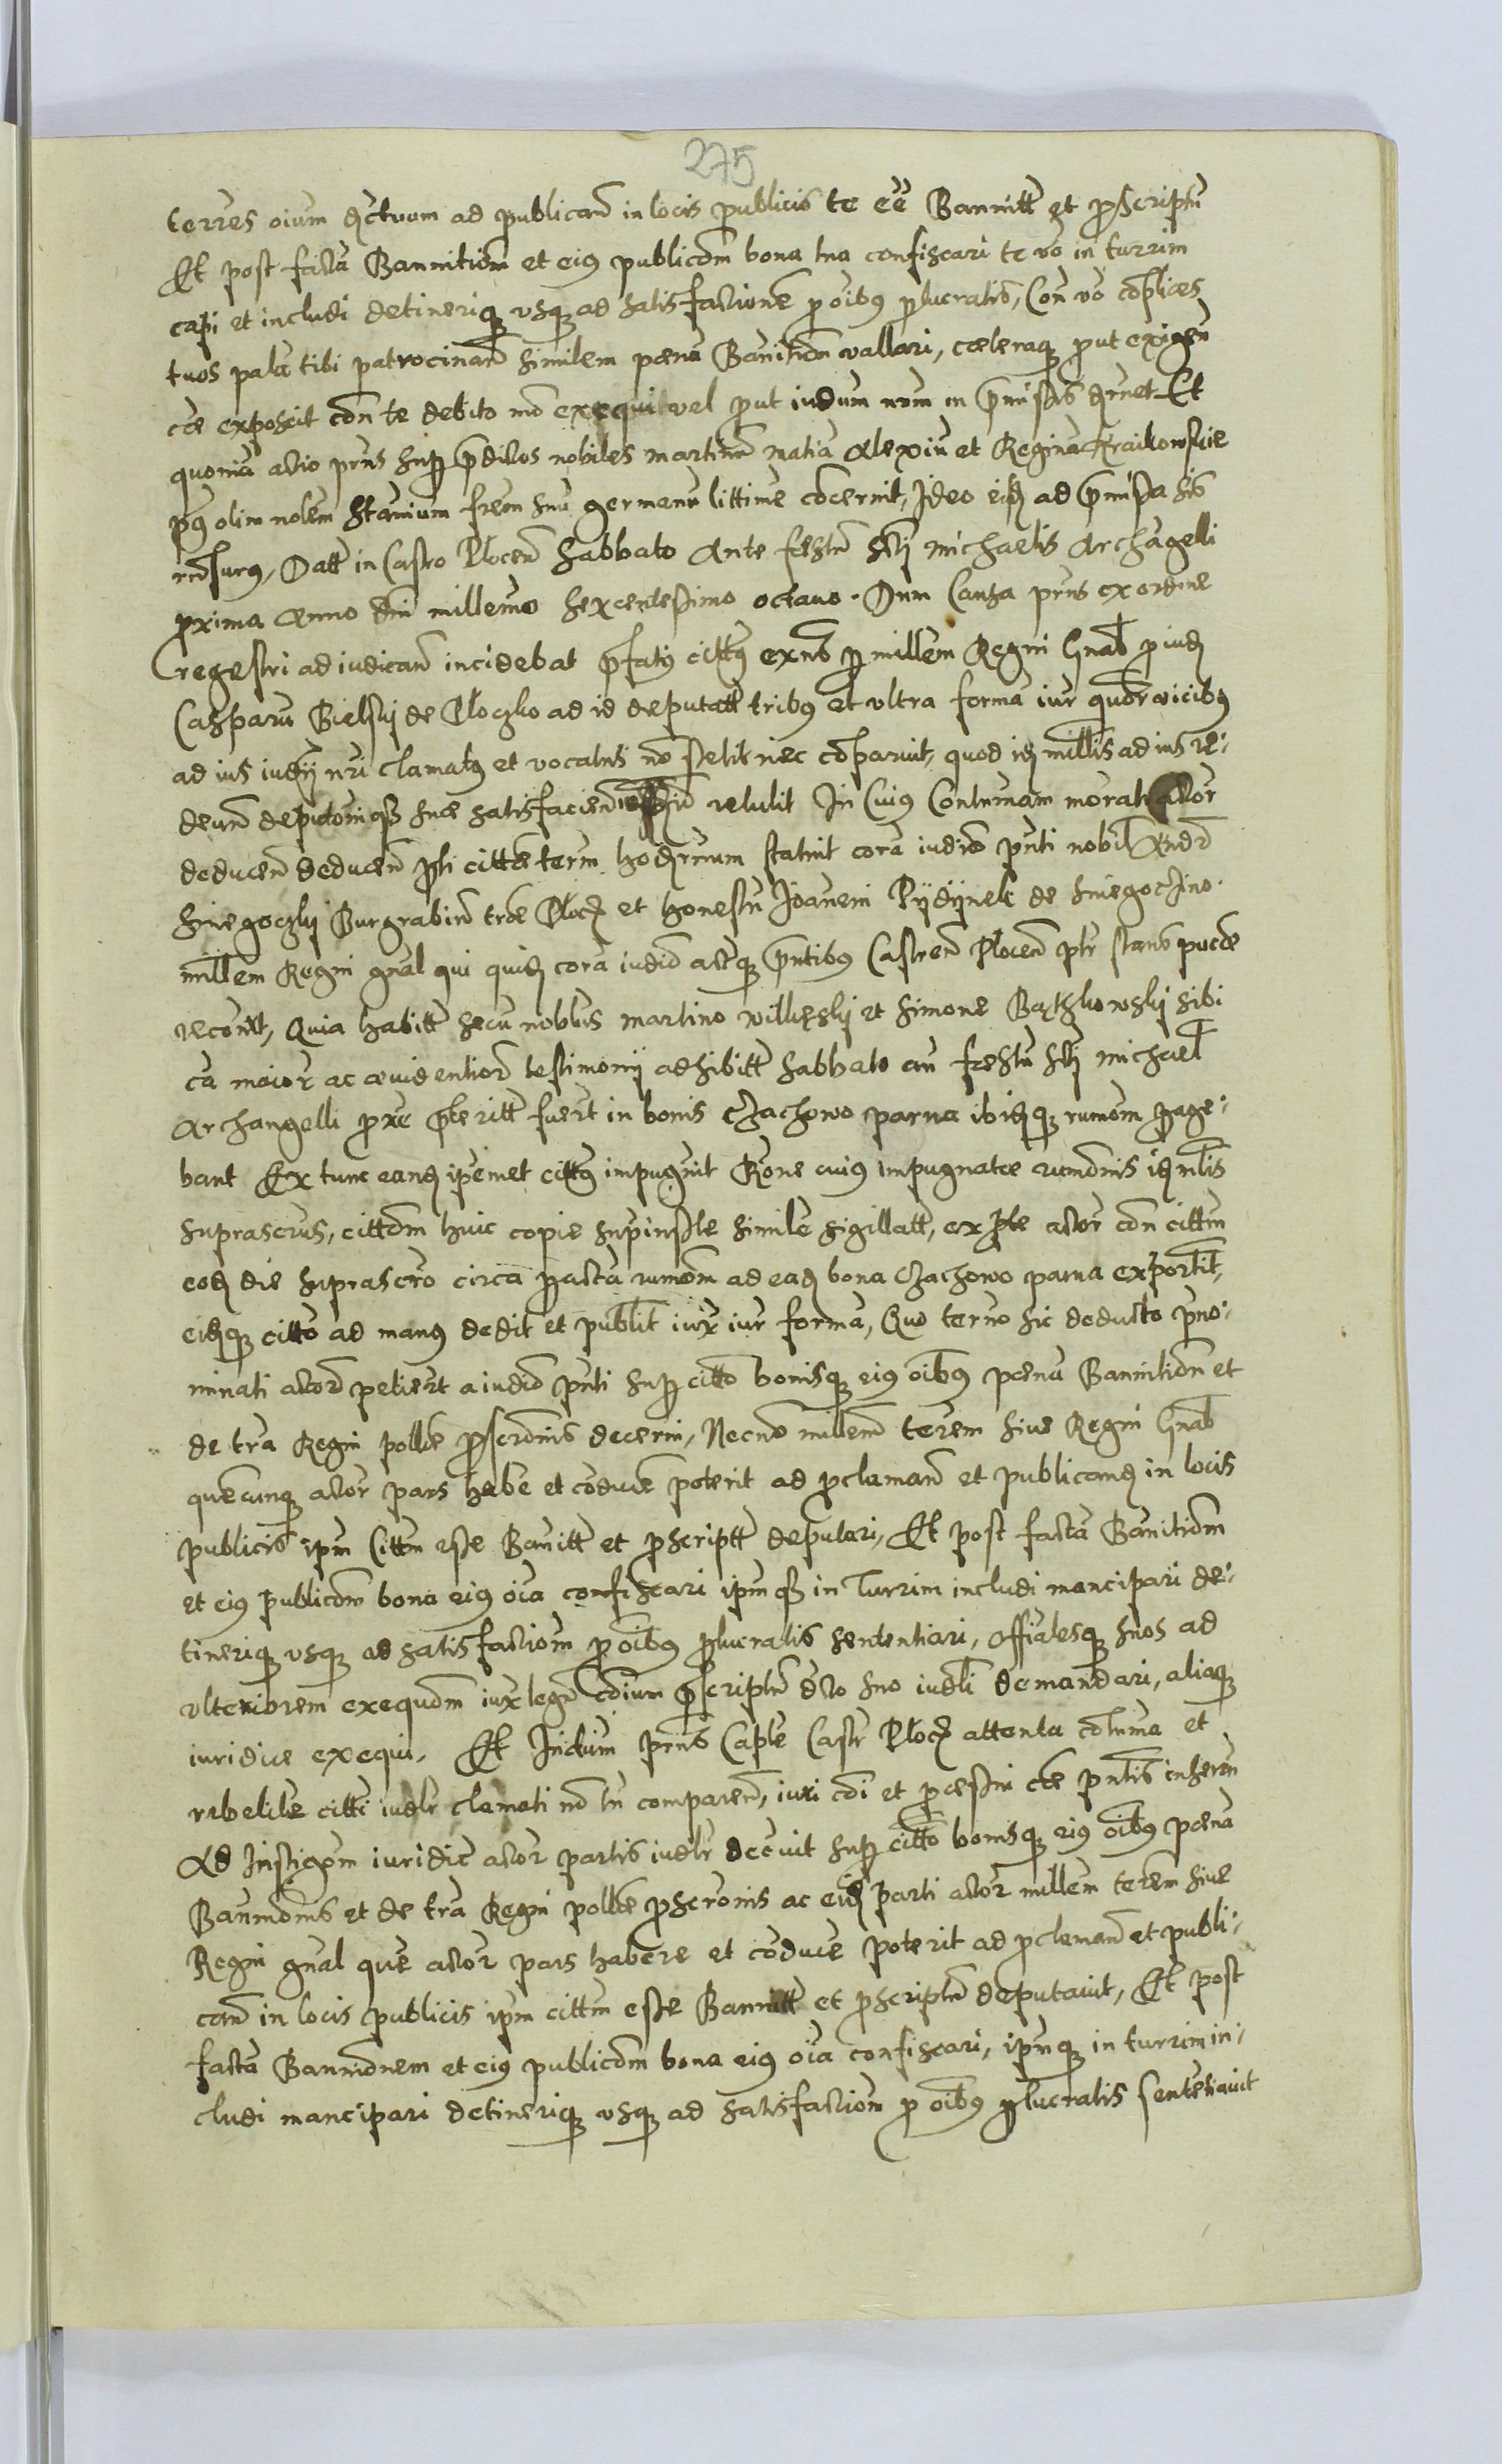 275
terres oium ad publicand in locis publicis te eē Bannitt et proscriptū
Et post factā Bannitiom et eiꝯ publicōm bona tua confiscari te vō in turrim
capi et includi detineriqꝫ usqꝫ ad satisfactionē p oibꝯ plucratis, Con vō cōplices
tuos palā tibi patrocinand similem pœnā Banitiōn vallari, cæteraqꝫ put
exposcit cōn te debito mō exequi vel put iudum nrm in pmissis Et
quoniā actio prns supꝫ pdictos nobiles martinū matiā Alexiū et Reginā Kraikowskie
olim nolem Stanium frem suū germanū littime cōcernit, Ideo ad pmissa sis
rnsurꝯ, Datt in Castro Plocen Sabbato Ante festū Scti Michaelis Archāgelli
pxima Anno dni millemo sexcentesimo octavo. Dum Causa prns ex ordine
regestri ad iudicand incidebat pfatꝯ cittꝯ p millem Regni Gnal
Casparū Bielskij de Ploczko ad id deputatt tribꝯ et ultra formā iur vicibꝯ
ad ius iudij nri clamatꝯ et vocatus nō stetit nec cōparuit, quod millis ad ius re-
deund suæ satisfaciend retulit In Cuiꝯ Contumam morati actor
deducend deducend citte term hodiernum statuit corā iudio pnti nobil And
Sniegoczkij Burgrabiū træ Ploc et honestū Joannem de Sniegoczino
millem Regni gnal qui quid corā iudio actisqꝫ pntibꝯ Castren Plocen ptr stans
recont, Quia habitt secū noblus martino et Simone sibi
ca maior ac evidentior testimonij adhibitt Sabbato an festū Scti Michael
Archangelli pxe pteritt fuert in bonis Czachowo parva ibidqꝫ rumom page-
bant Ex tunc eand ipemet cittꝯ impugnit Rōne cuiꝯ impugnatæ rumōnis id mlis
suprascrus, cittōm huic copie simile sigillatt, ex pte actor cōn cittm
eod die suprascro circa pactā rumōm ad ead bona Czachowo parva exportit,
eidqꝫ citto ad manꝯ dedit et publit iux iur formā, Quo termo sic deducto pno-
minati actor petiert a iudio pnti supꝫ citto bonisqꝫ eiꝯ oibꝯ pœnā Bannitiōn et
de tra Regni pollæ pscrōnis decerni, Necnō millem terrem sive Regni Gnal
quemcunqꝫ actor pars habē et cōducē poterit ad pclamand et publicand in locis
publicis ipm cittm esse Banitt et pscriptt deputari, Et post factā Banitiōm
et eiꝯ publicōm bona eiꝯ oia confiscari ipmqꝫ in turrim includi mancipari de-
tineriqꝫ usqꝫ ad satisfactiōm p oibꝯ plucratis sententiari, officialesqꝫ suos ad
ulteriorem exequōm iux legū cōium pscriptū dcto suo iudli demandari, aliaqꝫ
iuridice exequi. Et Iudium prns Caple Castr Ploc attenta cōtuma et
rebelile citti iudlr clamati nō tn comparen, iuri cōi et pntis inheren
Ad Instigom iuridic actor partis iudlr decvit supꝫ citto bonisqꝫ eiꝯ oibꝯ pœnā
Bannionis et de tra Regni pollæ pscronis ac eid parti actor millem terrem sive
Regni gnal que actor pars habere et cōducere poterit ad pclamand et publi-
cand in locis publicis ipm cittm esse Bannitt et pscriptū deputavit, Et post
factā Bannionem et eiꝯ publicōm bona eiꝯ oia confiscari, ipmqꝫ in turrim in-
cludi mancipari detineriqꝫ usqꝫ ad satisfactiōm p oibꝯ plucratis sentētiavit